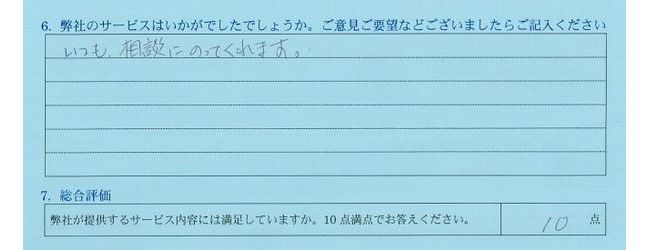 6. 弊社のサービスはいかがでしたでしょうか。ご意見ご要望などございましたらご記入ください
いつも、相談にのってくれます。
7. 総合評価
弊社が提供するサービス内容には満足していますか。10 点満点でお答えください。 10 点